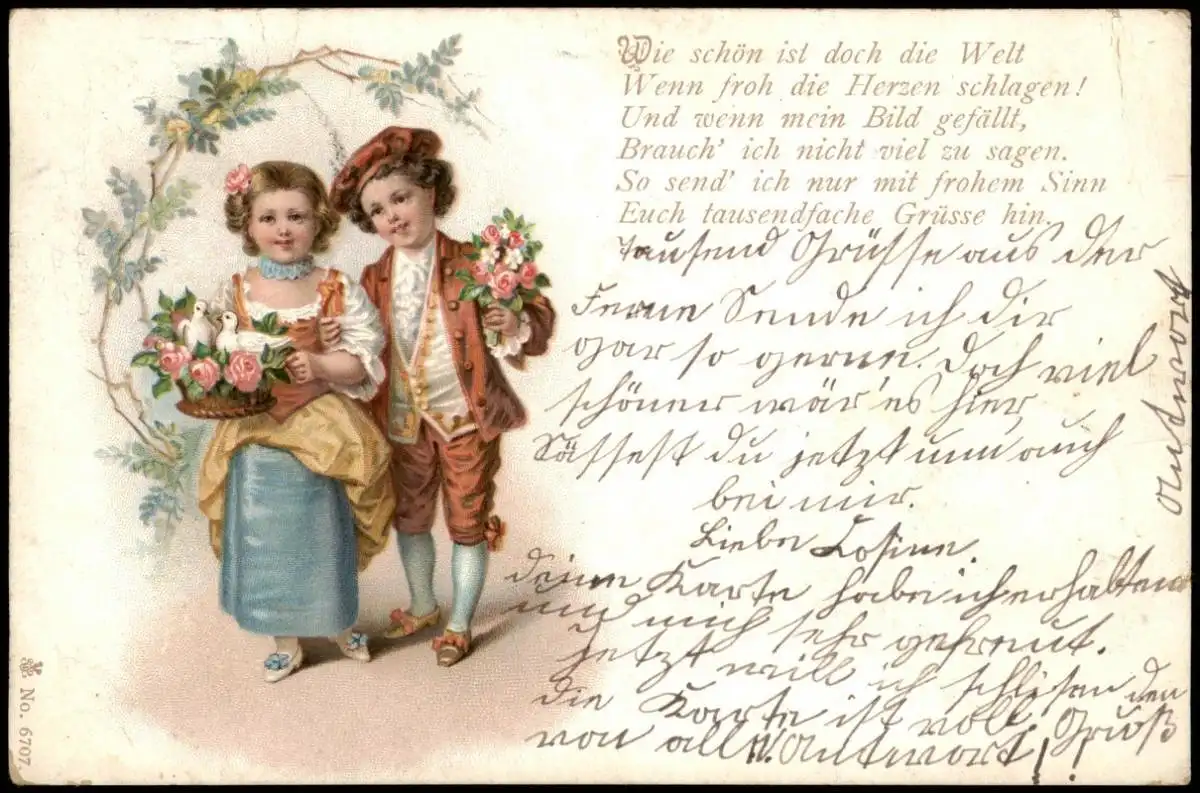 Wie schön ist doch die Welt
Wenn froh die Herzen schlagen!
Und wenn mein Bild gefällt,
Brauch' ich nicht viel zu sagen.
So send' ich nur mit frohem Sinn
Euch tausendfache Grüsse hin.
Tausend Grüsse aus der
Ferne Sende ich dir
gar so gerne. Doch viel
schöner wär es hier
Sässest du jetzt nun auch
bei mir.
Liebe
deine Karte habe ich erhalten
und mich sehr gefreut.
Jetzt will ich schlisen den
die Karte ist voll. Gruß
von all Antwort!!
Antwort
No. 6707.